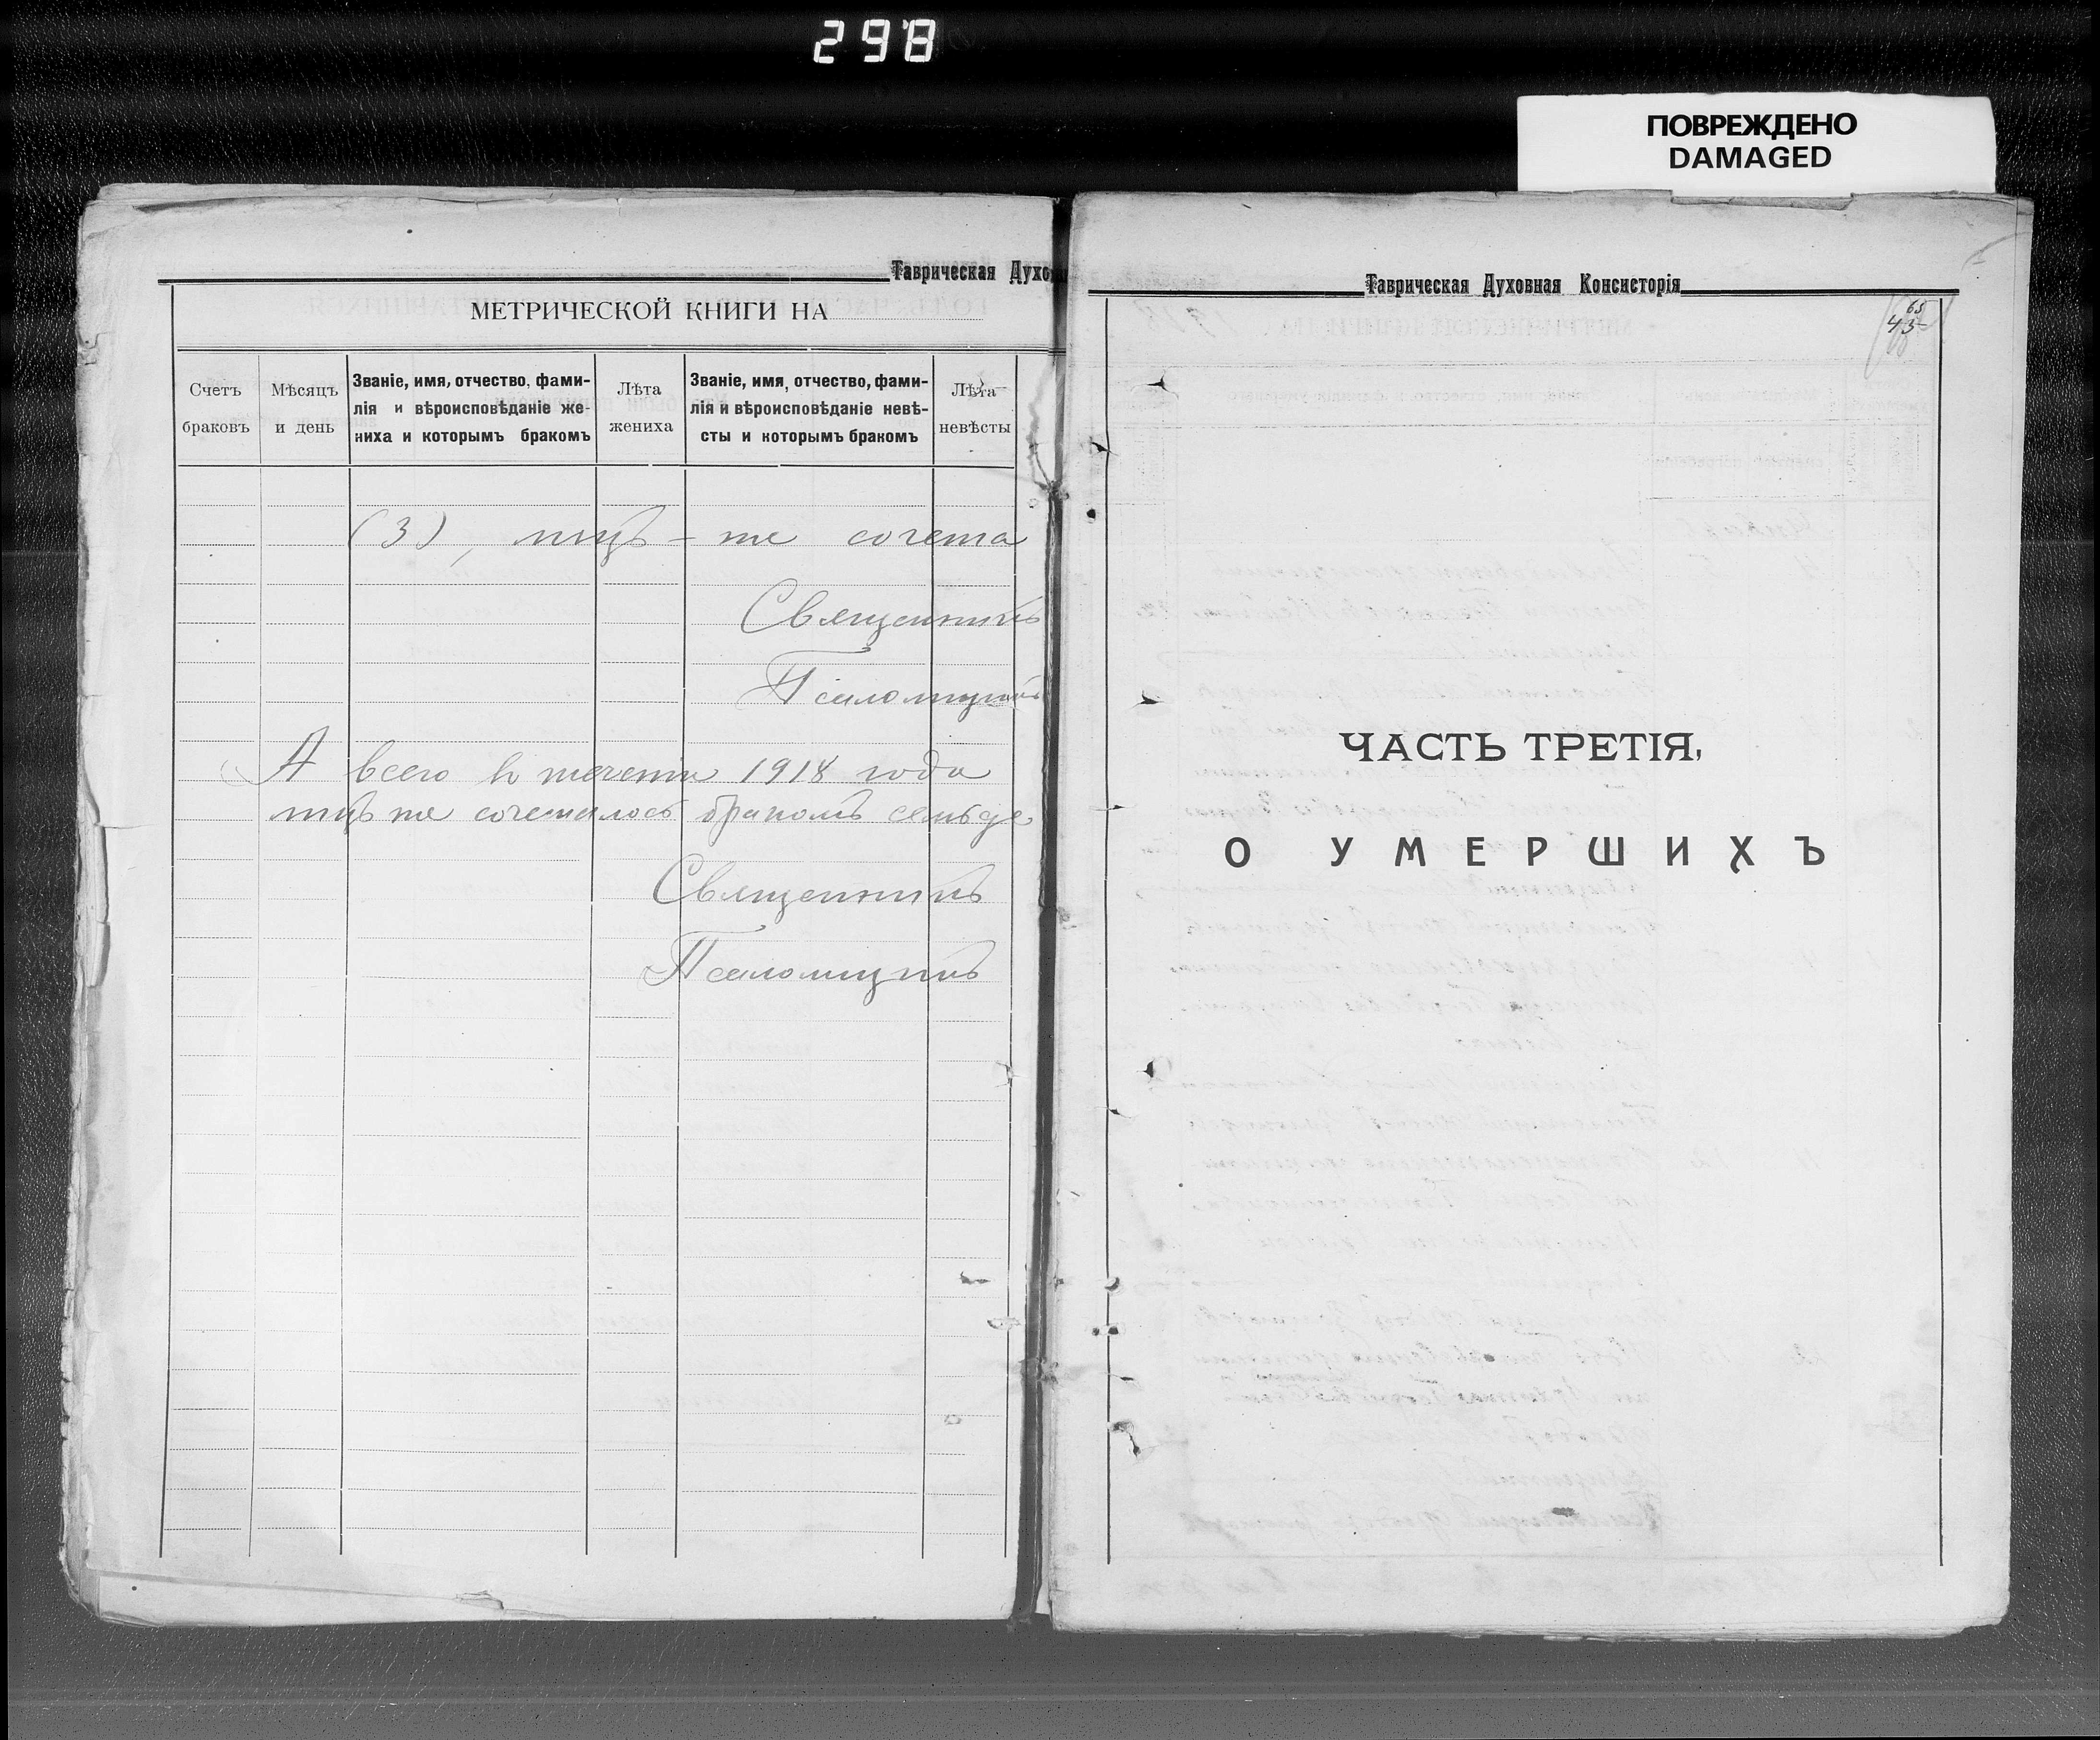 298
ПОВРЕЖДЕНО
DAMAGED
Таврическая Духов
МЕТРИЧЕСКОЙ КНИГИ НА
Счетъ браковъ
Мѣсяцъ и день
Званіе, имя, отчество, фами-
лія и вѣроисповѣданіе же-
ниха и которымъ бракомъ
Лѣта жениха
Званіе, имя, отчество, фами-
лія и вѣроисповѣданіе невѣ-
сты и которымъ бракомъ
Лѣта невѣсты
(3), лицъ - же сочета
Священникъ
Псаломщикъ
А всего въ теченіи 1918 года
лицъ же сочеталось бракомъ семьде
Священникъ
Псаломщикъ
Таврическая Духовная Консисторія
65
43
ЧАСТЬ ТРЕТІЯ,
О УМЕРШИХЪ